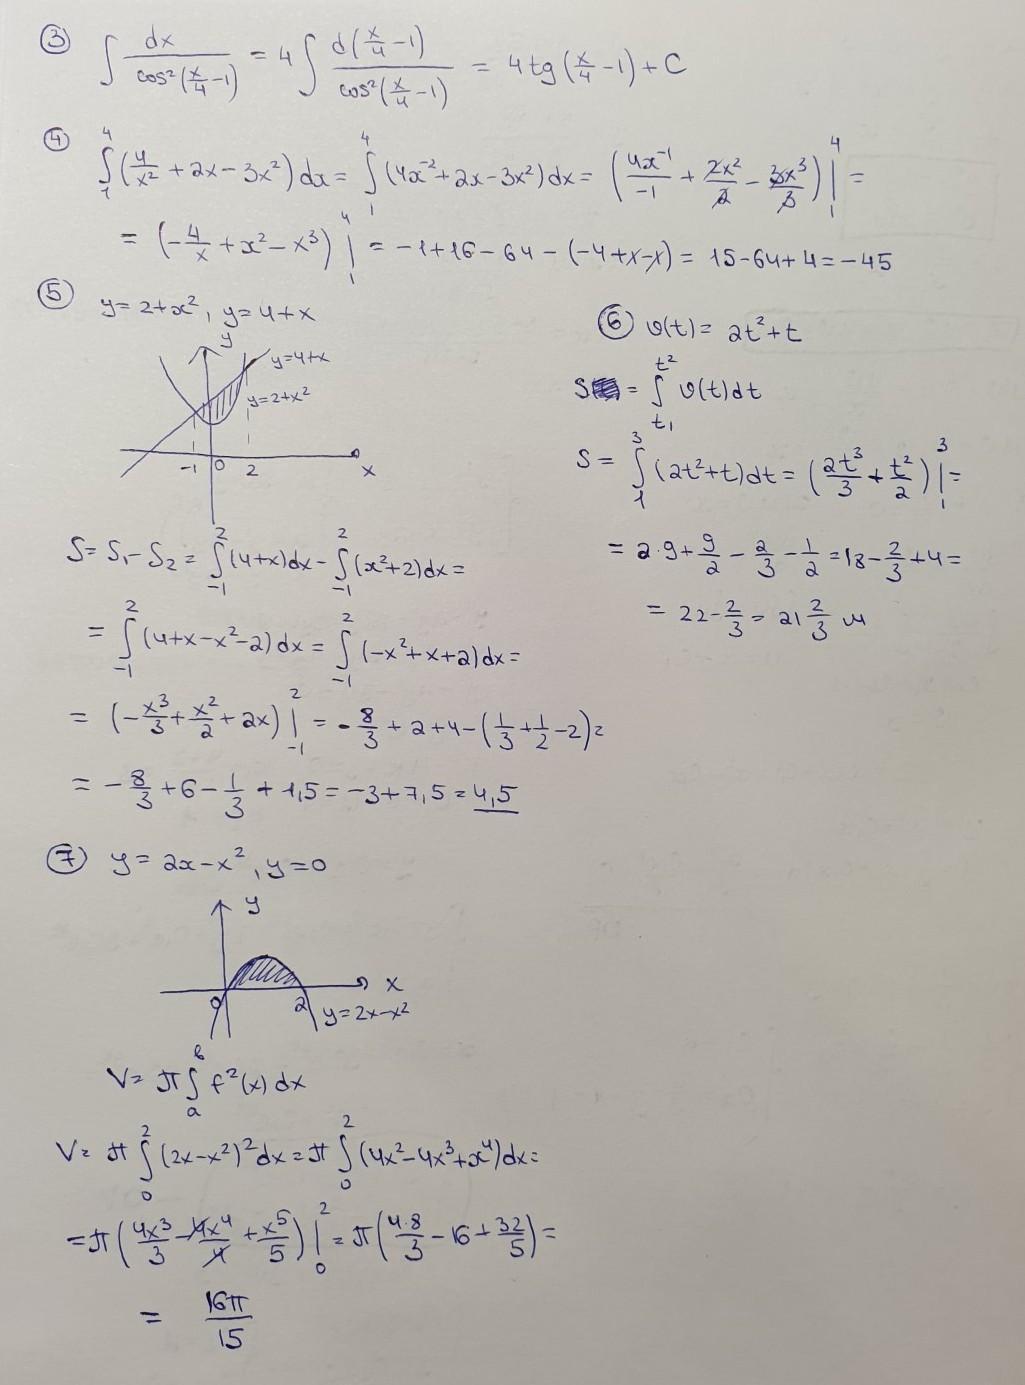 ③ ∫ dx / cos²(x/4 −1) = 4 ∫ d(x/4 −1) / cos²(x/4 −1) = 4 tg (x/4 −1) + C
④ ∫₁⁴ (4/x² + 2x − 3x²) dx = ∫₁⁴ (4x⁻² + 2x − 3x²) dx = (4x⁻¹/−1 + 2x²/2 − 3x³/3) |₁⁴ =
= (−4/x + x² − x³) |₁⁴ = −1+16−64 − (−4+x−x) = 15−64+4 = −45
⑤ y = 2+x², y = 4+x
y
y=4+x
y=2+x²
−1 0 2 x
S = S₁ − S₂ = ∫₋₁² (4+x)dx − ∫₋₁² (x²+2)dx =
= ∫₋₁² (4+x−x²−2) dx = ∫₋₁² (−x²+x+2) dx =
= (−x³/3 + x²/2 + 2x) |₋₁² = −8/3 + 2+4 − (1/3 + 1/2 −2) =
= −8/3 + 6 − 1/3 + 1,5 = −3+7,5 = 4,5
⑥ υ(t) = 2t²+t
S = ∫ₜ₁^t² υ(t)dt
S = ∫₁³ (2t²+t)dt = (2t³/3 + t²/2) |₁³ =
= 2·9 + 9/2 − 2/3 − 1/2 = 18 − 2/3 + 4 =
= 22 − 2/3 = 21 2/3 м
⑦ y = 2x−x², y=0
y
x
0 2 y=2x−x²
V = π ∫ₐᵇ f²(x) dx
V = π ∫₀² (2x−x²)² dx = π ∫₀² (4x²−4x³+x⁴) dx =
= π (4x³/3 − 4x⁴/4 + x⁵/5) |₀² = π (4·8/3 − 16 + 32/5) =
= 16π/15